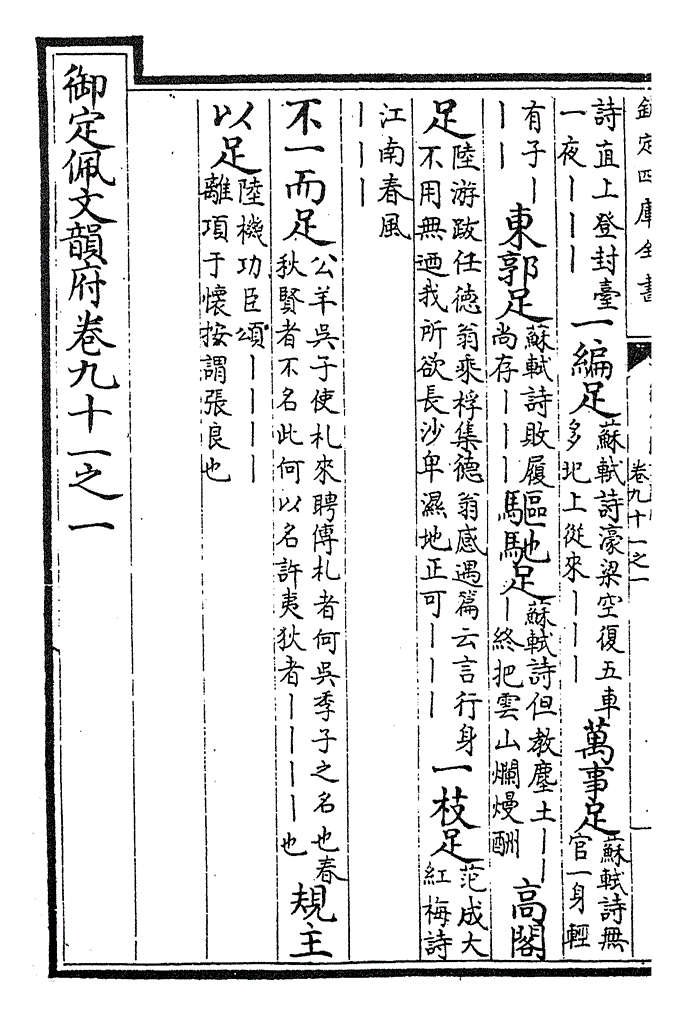 欽定四庫全書
卷九十一之一
詩直上登封臺
一夜｜｜｜
一編足
蘇軾詩濠梁空復五車
多圯上從來｜｜｜
萬事足
蘇軾詩無
官一身輕
有子｜
｜｜
東郭足
蘇軾詩敗履
尚存｜｜｜
驅馳足
蘇軾詩但教塵土｜｜
｜終把雲山爛熳酬
高閣
足
陸游跋任德翁乘桴集德翁感遇篇云言行身
不用無廼我所欲長沙卑濕地正可｜｜｜
一枝足
范成大
紅梅詩
江南春風
｜｜｜
不一而足
公羊吳子使札來聘傳札者何吳季子之名也春
秋賢者不名此何以名許夷狄者｜｜｜｜也
規主
以足
陸機功臣頌｜｜｜｜
離項于懷按謂張良也
御定佩文韻府卷九十一之一